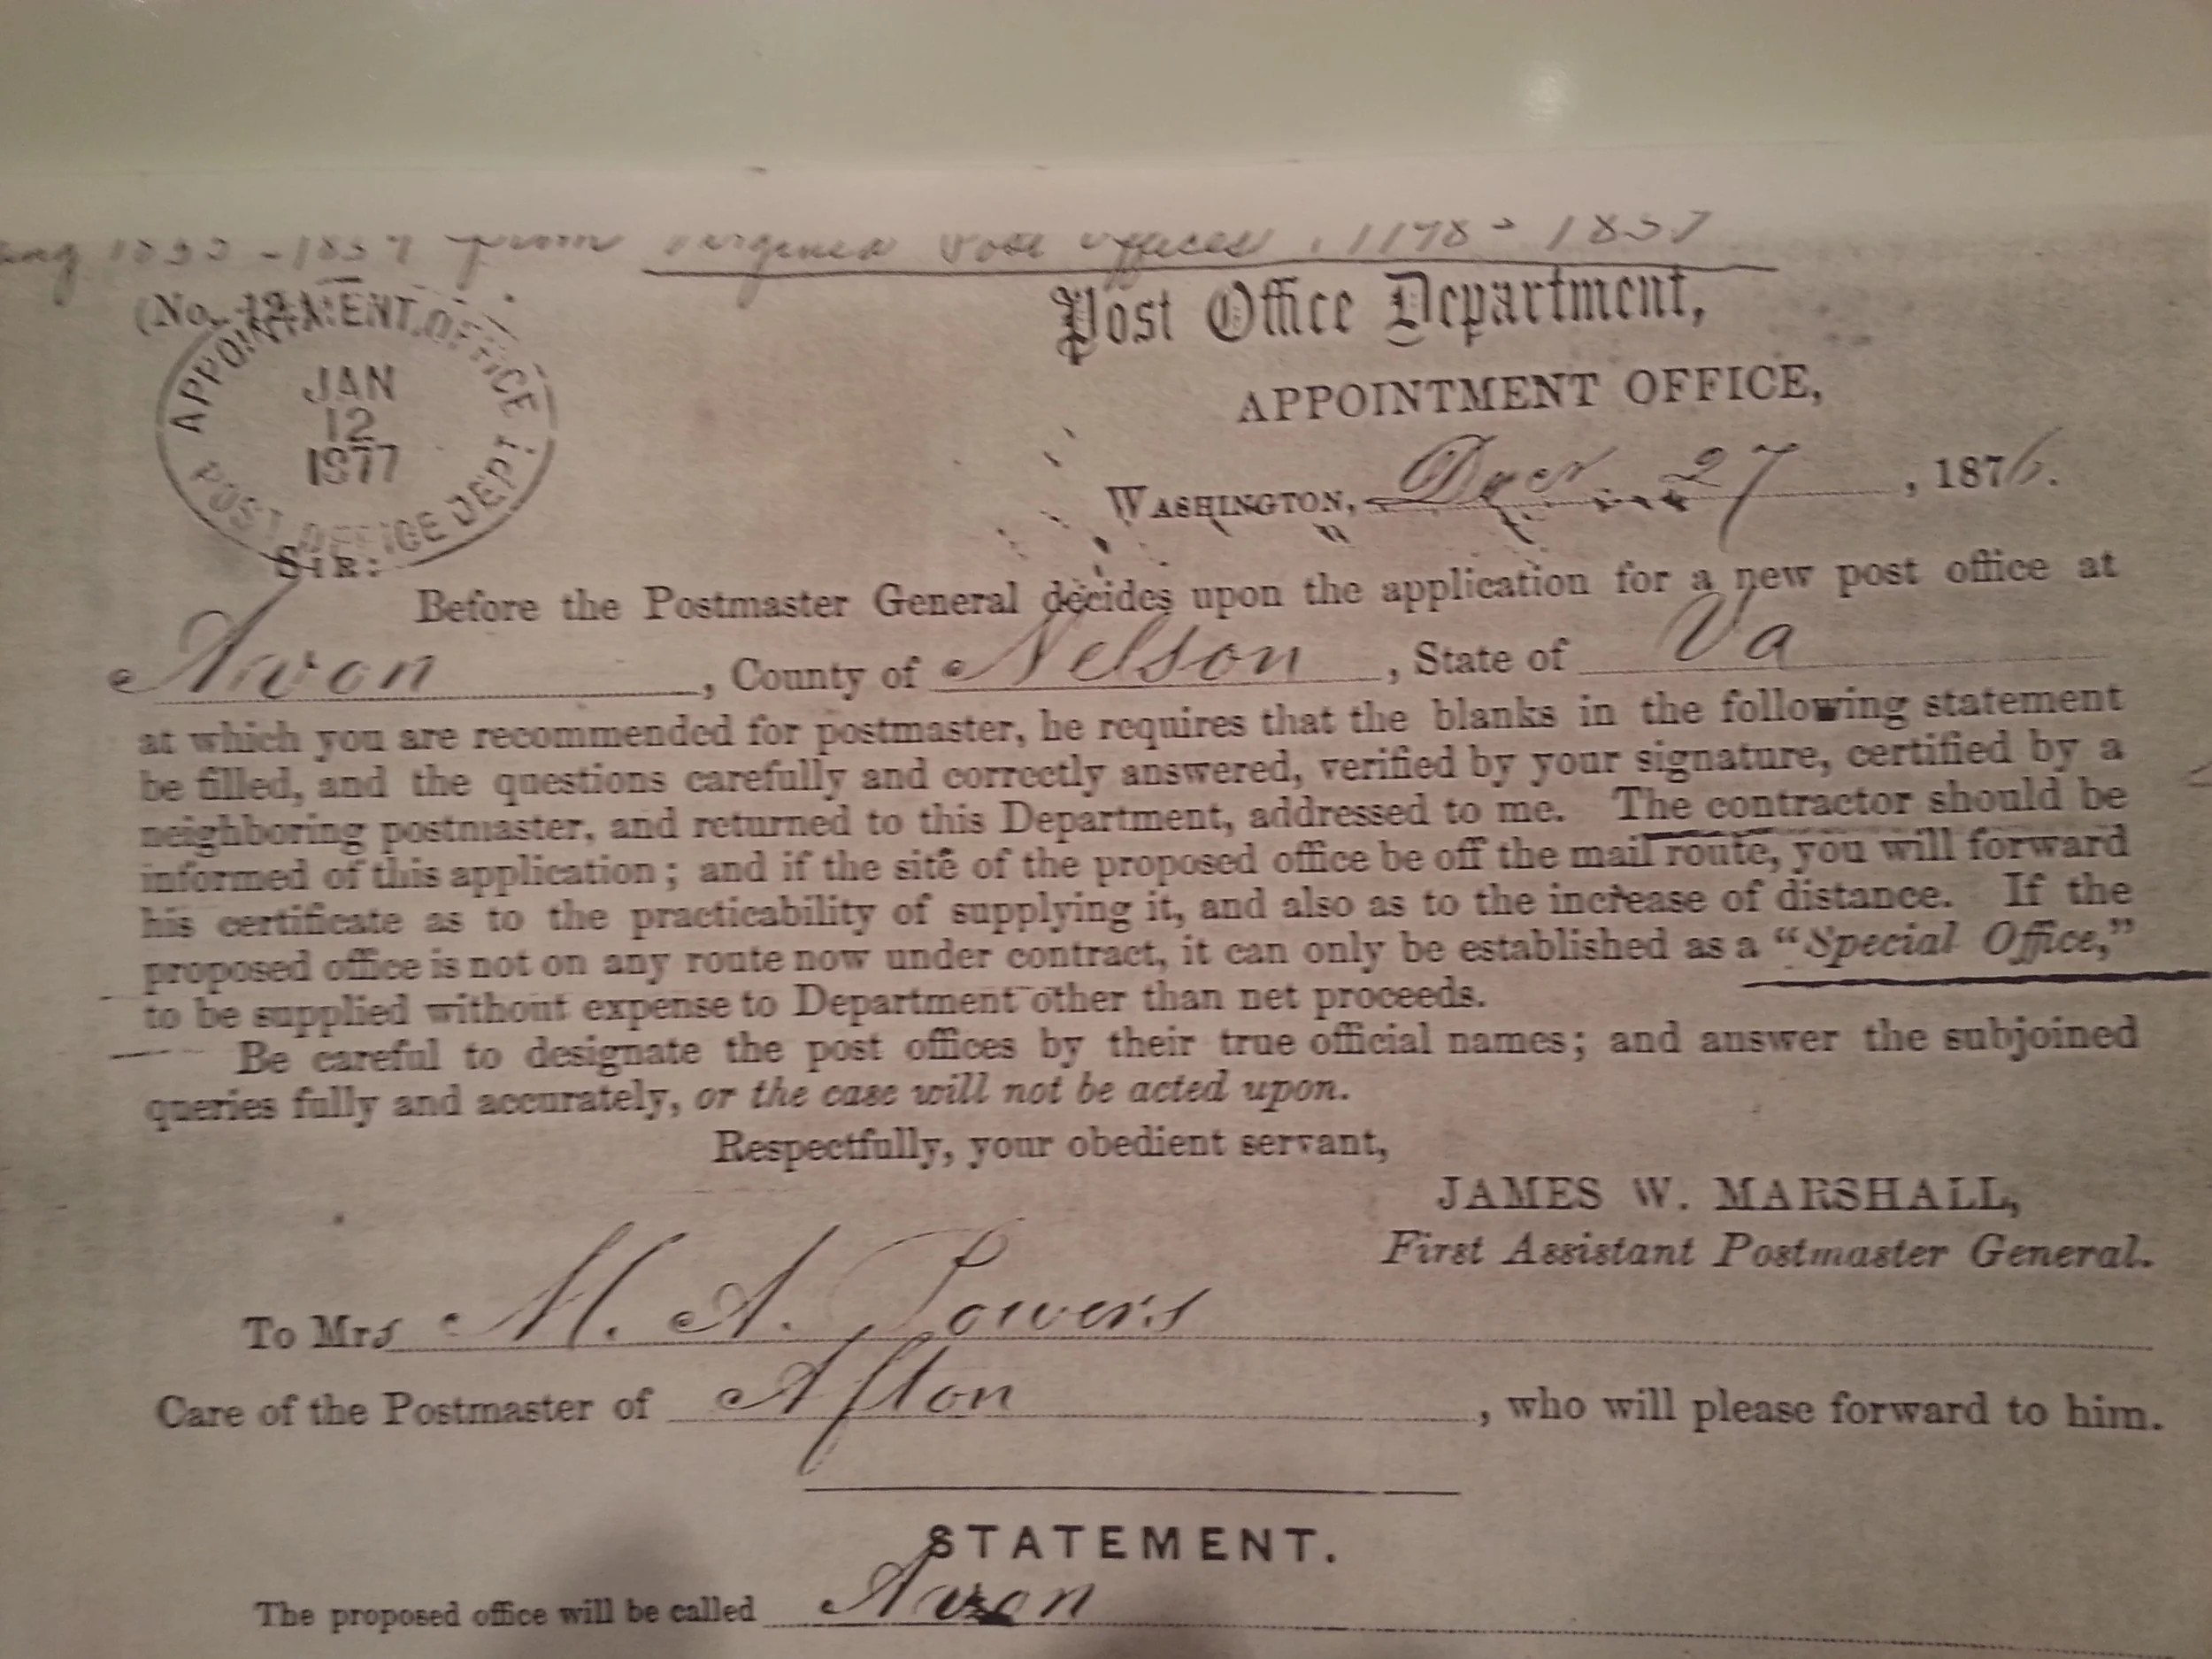 1833 - 1837 from Virginia Post Offices, 1798 - 1837
(No. 12
APPOINTMENT OFFICE
JAN
12
1877
POST OFFICE DEPT
Post Office Department,
APPOINTMENT OFFICE,
WASHINGTON, Decr. 27, 1876.
SIR:
Before the Postmaster General decides upon the application for a new post office at
Avon, County of Nelson, State of Va
at which you are recommended for postmaster, he requires that the blanks in the following statement
be filled, and the questions carefully and correctly answered, verified by your signature, certified by a
neighboring postmaster, and returned to this Department, addressed to me. The contractor should be
informed of this application; and if the site of the proposed office be off the mail route, you will forward
his certificate as to the practicability of supplying it, and also as to the increase of distance. If the
proposed office is not on any route now under contract, it can only be established as a "Special Office,"
to be supplied without expense to Department other than net proceeds.
Be careful to designate the post offices by their true official names; and answer the subjoined
queries fully and accurately, or the case will not be acted upon.
Respectfully, your obedient servant,
JAMES W. MARSHALL,
First Assistant Postmaster General.
To Mrs M. A. Powers
Care of the Postmaster of Afton, who will please forward to him.
STATEMENT.
The proposed office will be called Avon